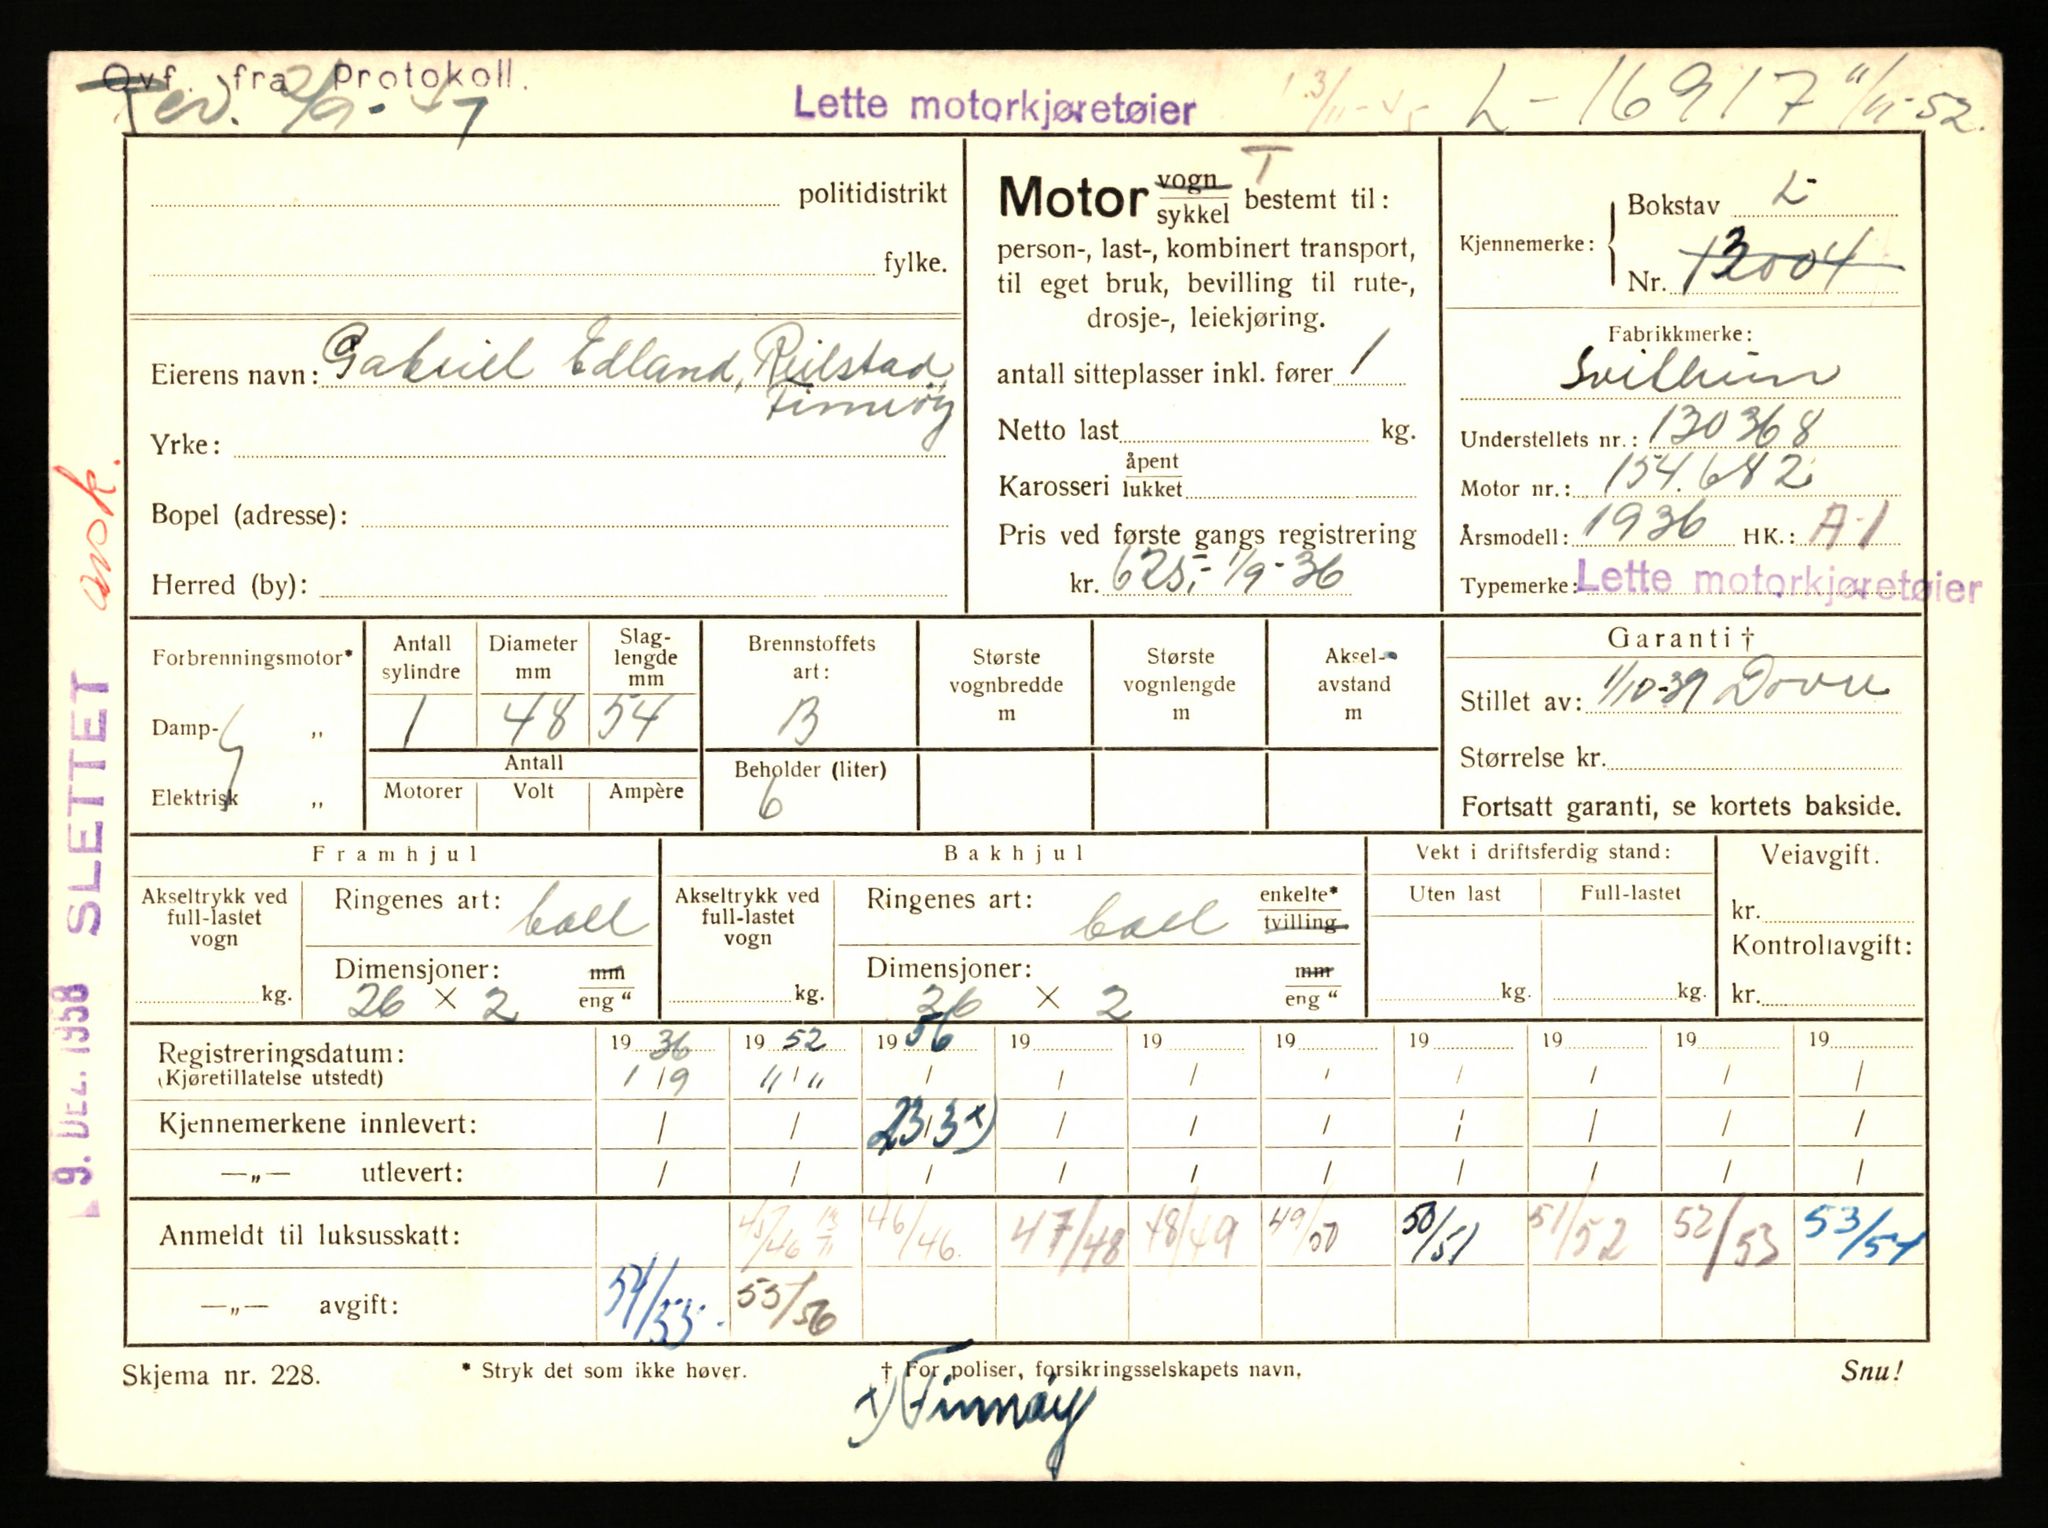 Ovf. fra Protokoll.
Rev. 2/9-47
Lette motorkjøretøier
13/11-45
L-16917 11/11-52.
politidistrikt
fylke.
Eierens navn: Gabriel Edland, Reilstad,
Finnøy
Yrke:
Bopel (adresse):
Herred (by):
T
Motor vogn/sykkel bestemt til:
person-, last-, kombinert transport,
til eget bruk, bevilling til rute-,
drosje-, leiekjøring.
antall sitteplasser inkl. fører 1
Netto last kg.
Karosseri åpent/lukket
Pris ved første gangs registrering
kr. 625,- 1/9-36
Kjennemerke: Bokstav L
Nr. 13004
Fabrikkmerke:
Svithun
Understellets nr.: 130368
Motor nr.: 154.682
Årsmodell: 1936 HK.: A-1
Typemerke: Lette motorkjøretøier
Forbrenningsmotor*
Damp- „
Elektrisk „
Antall sylindre
1
Diameter mm
48
Slaglengde mm
54
Antall
Motorer Volt Ampère
Brennstoffets art:
B
Beholder (liter)
6
Største vognbredde m
Største vognlengde m
Aksel-avstand m
Garanti †
Stillet av: 1/10-39 Dovre
Størrelse kr.
Fortsatt garanti, se kortets bakside.
Framhjul
Akseltrykk ved full-lastet vogn
kg.
Ringenes art: ball
Dimensjoner: mm/eng "
26 x 2
Bakhjul
Akseltrykk ved full-lastet vogn
kg.
Ringenes art: ball enkelte*/tvilling
Dimensjoner: mm/eng "
26 x 2
Vekt i driftsferdig stand:
Uten last Full-lastet
kg. kg.
Veiavgift.
kr.
Kontrollavgift:
kr.
Registreringsdatum: 1936 1952 1956 19 19 19 19 19 19 19
(Kjøretillatelse utstedt) 1/9 11/11 / / / / / / / /
Kjennemerkene innlevert: / / 23/3 x) / / / / / / /
—„— utlevert: / / / / / / / / / /
Anmeldt til luksusskatt: 45/46 13/11 46/46. 47/48 48/49 49/50 50/51 51/52 52/53 53/54
—„— avgift: 54/55. 55/56
Skjema nr. 228.
* Stryk det som ikke høver.
† For poliser, forsikringsselskapets navn.
Snu!
x) Finnøy
9. DEZ. 1958 SLETTET avsk.